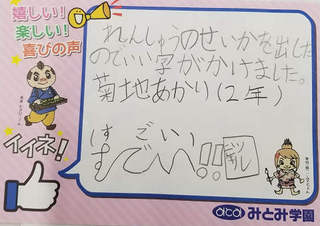 嬉しい!!
楽しい!
喜びの声
れんしゅうのせいかを出した
のでいい字がかけました。
菊地あかり(2年)
イイネ!
すごい
すごい!!
みとみ学園